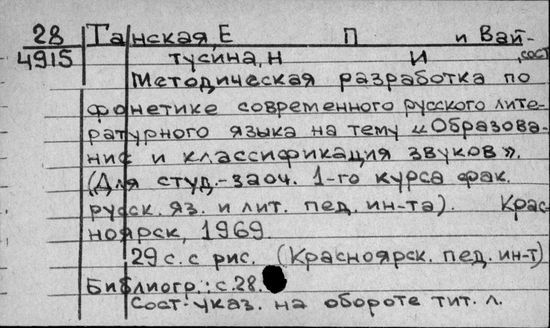 28
4915
Танская, Е П и Вай-
тусина, Н И , сост
Методическая разработка по
фонетике современного русского лите-
ратурного языка на тему «Образова-
ние и классификация звуков».
(Для студ.-заоч. 1-го курса фак.
русск. яз. и лит. пед. ин-та). Крас-
ноярск, 1969.
29 с. с рис. (Красноярск. пед. ин-т)
Библиогр.: с. 28.
Сост. указ. на обороте тит. л.